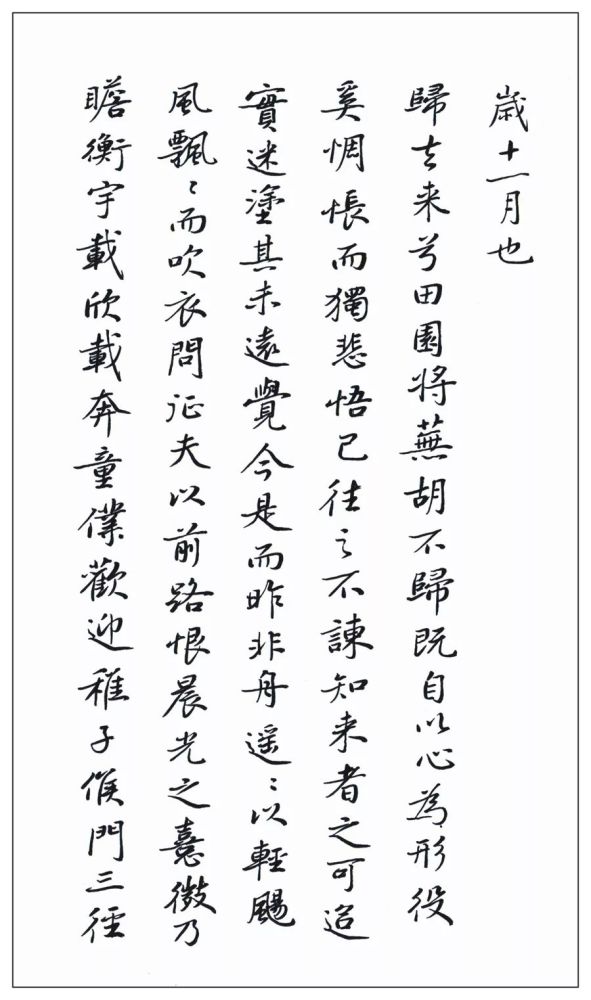 歲十一月也
歸去来兮田園将蕪胡不歸既自以心為形役
奚惆悵而獨悲悟已往之不諫知来者之可追
實迷塗其未遠覺今是而昨非舟遥〻以輕颺
風飄〻而吹衣問征夫以前路恨晨光之熹微乃
瞻衡宇載欣載奔童僕歡迎稚子候門三徑